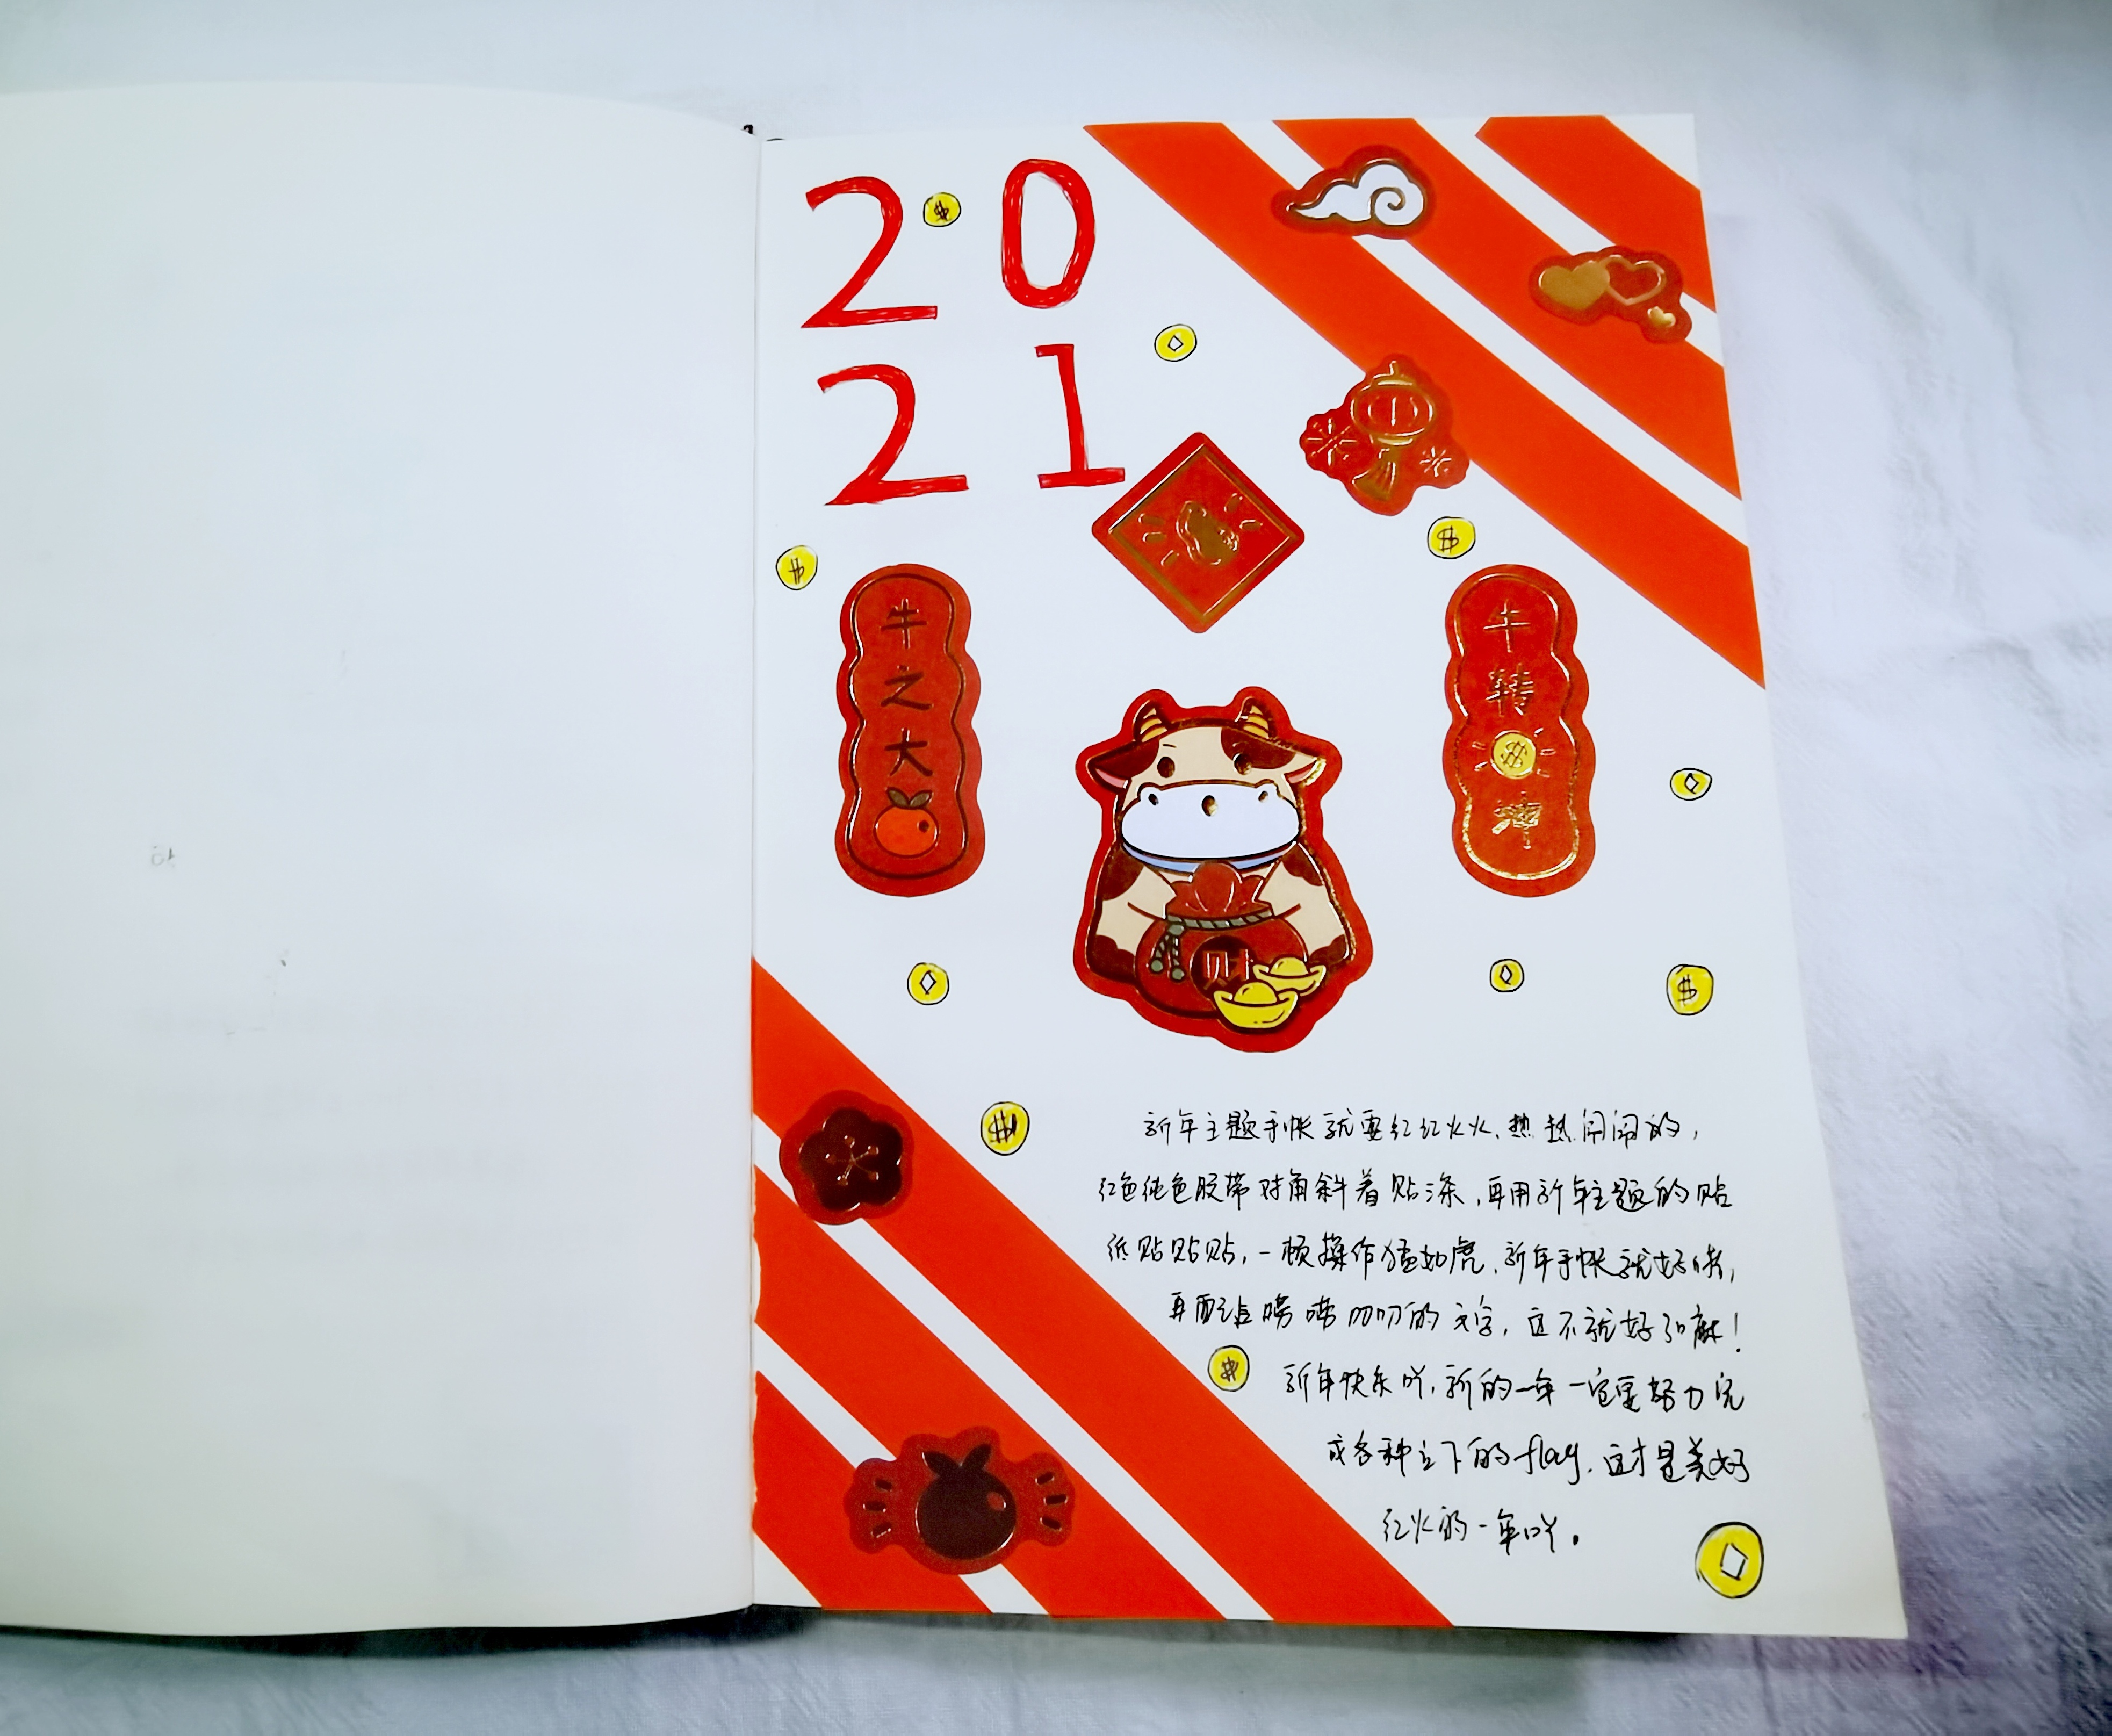 20
21
牛之大
牛转
坤
财
新年主题手帐就要红红火火、热热闹闹的,
红色纯色胶带对角斜着贴添,再用新年主题的贴
纸贴贴贴,一顿操作猛如虎,新年手帐就好啦,
再配点唠唠叨叨的文字,这不就好了嘛!
新年快乐吖,新的一年一定要努力完
成各种立下的flag,这才是美好
红火的一年吖。